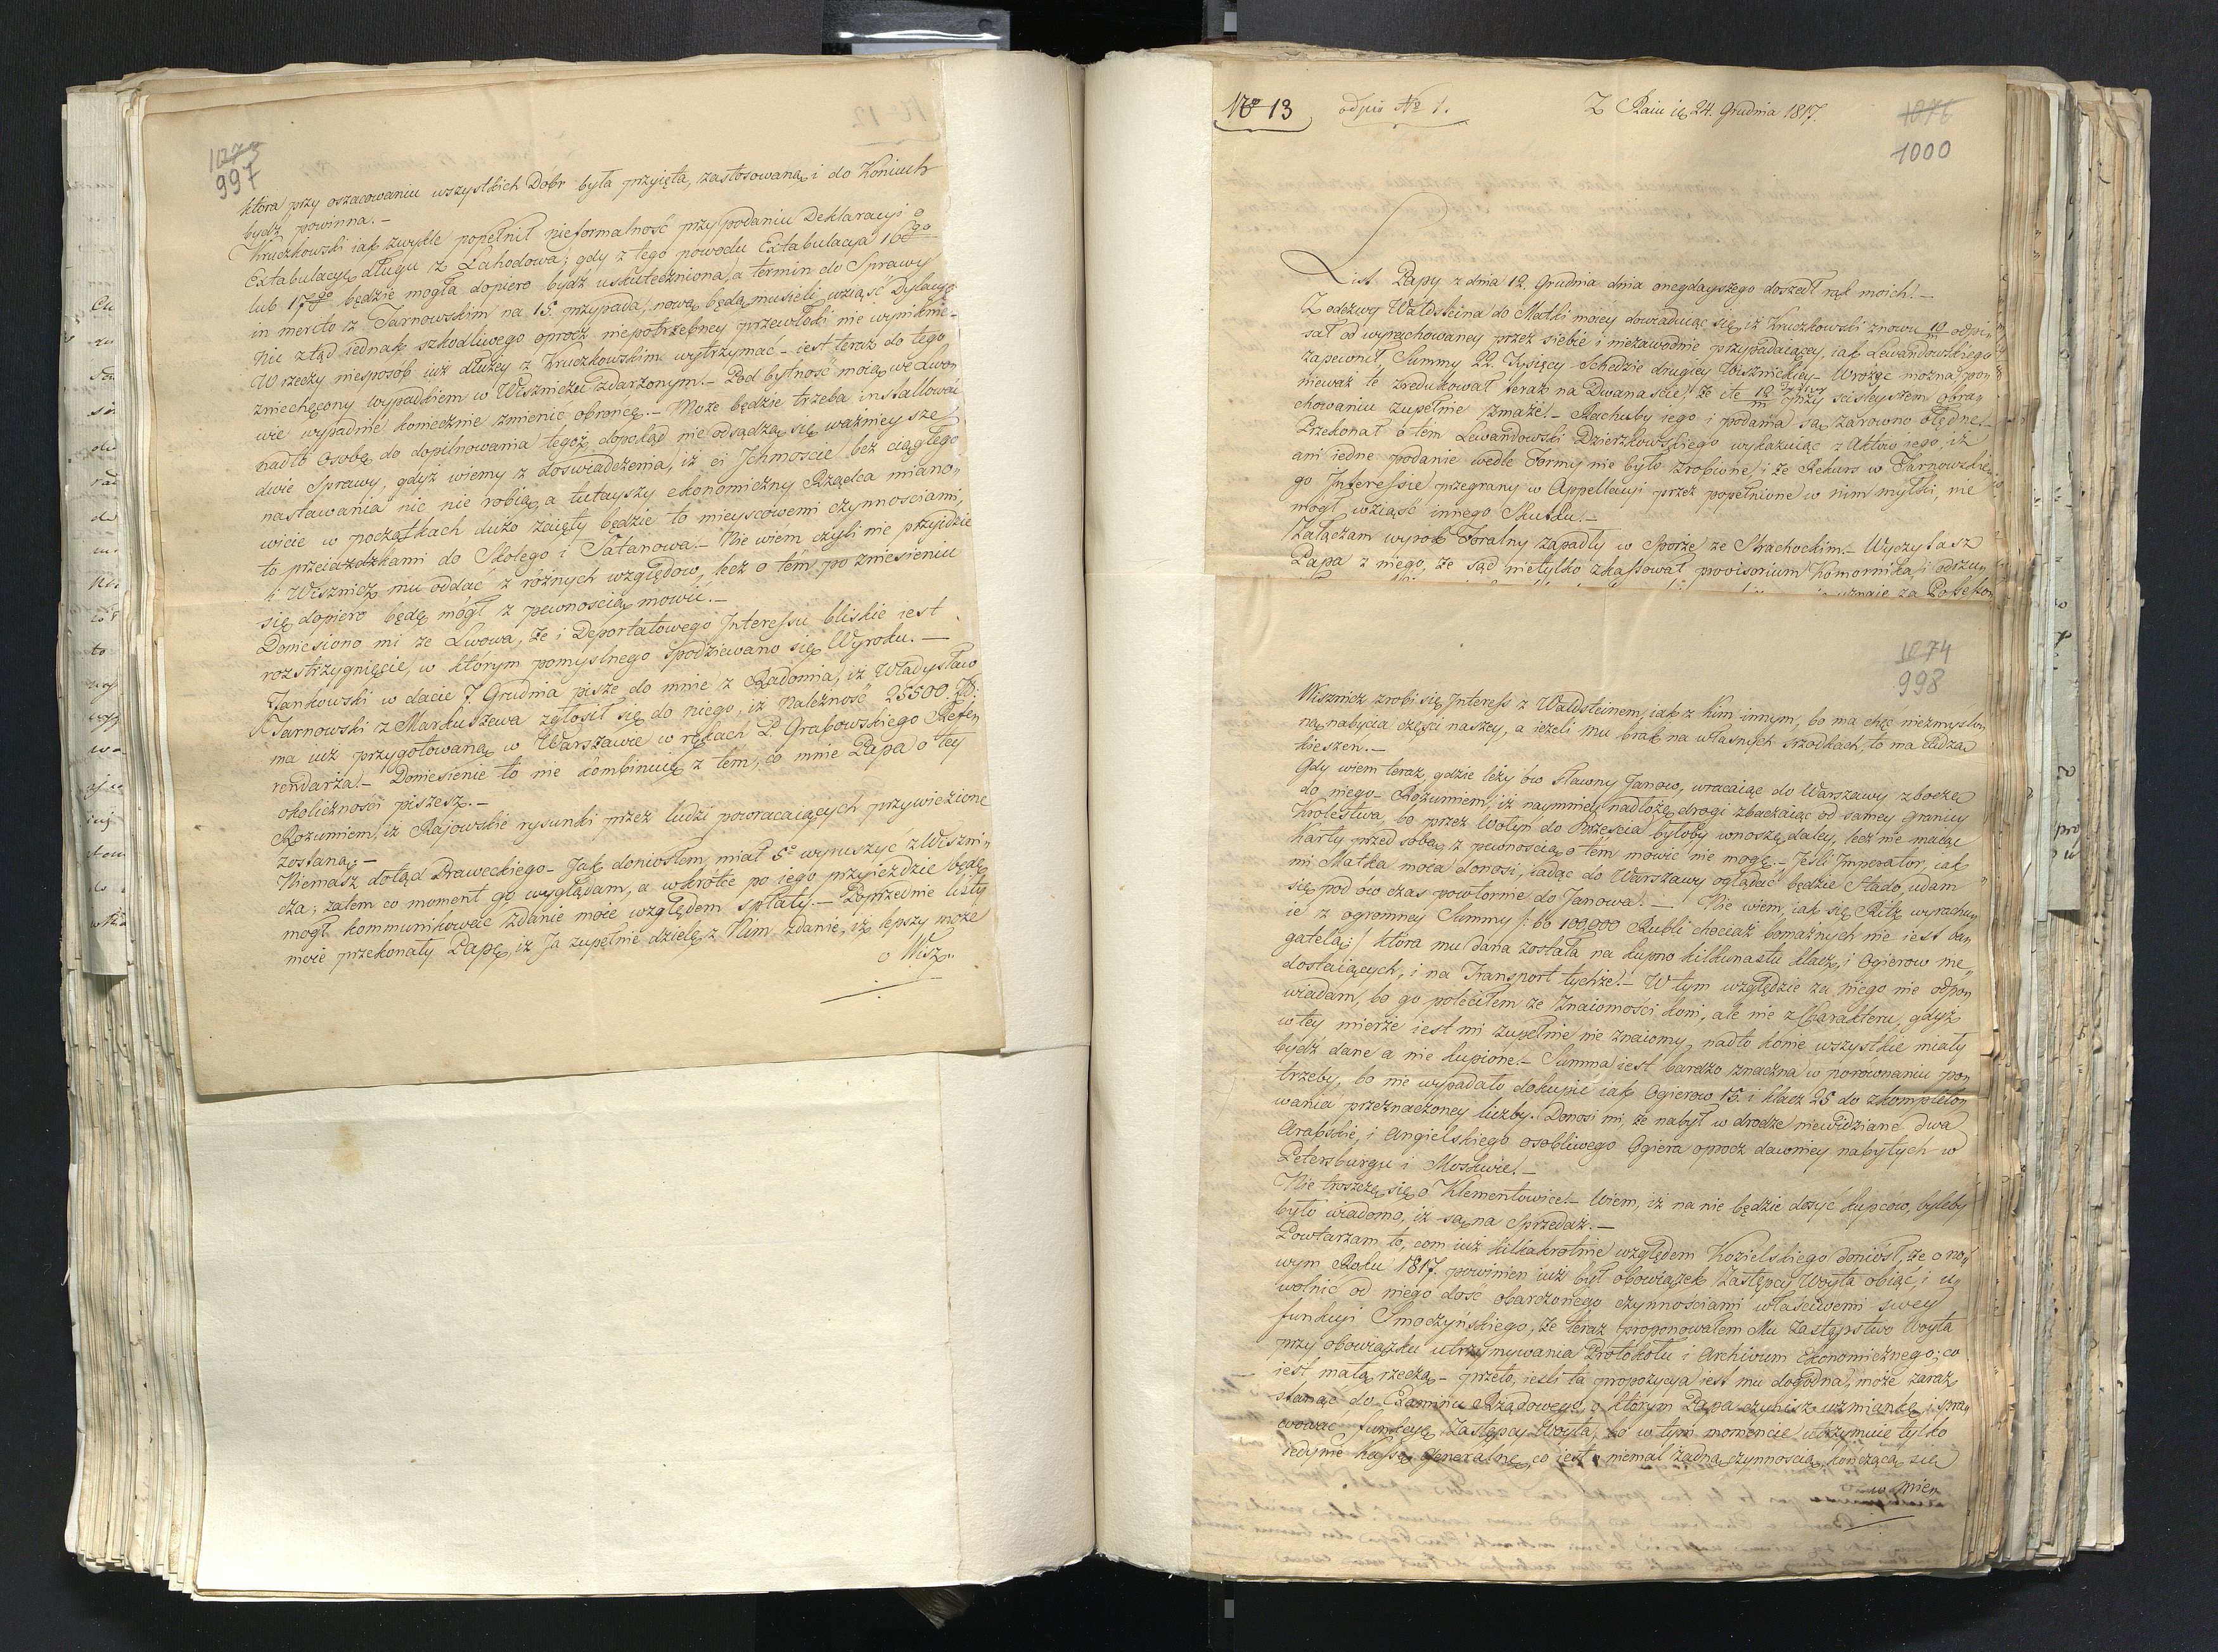 1073
997
która przy oszacowaniu wszystkich Dóbr była przyięta, zastosowaną i do Koniuch
bydź powinna.—
Kruczkowski iak zwykle popełnił nieformalność przy podaniu Deklaracyi o
Extabulacyę długu z Lahodowa; gdy z tego powodu Extabulacya 16go
lub 17go będzie mogła dopiero bydź uskuteczniona, a termin do Sprawy
in merito z Tarnowskim na 15. przypada, nową będą musieli wziąść Dylacyę
Nic ztąd iednak szkodliwego oprócz niepotrzebney przewłoki nie wyniknie.
W rzeczy niesposób iuż dłużey z Kruczkowskim wytrzymać – iest teraz do tego
zniechęcony wypadkiem w Wiszniczu zdarzonym.— Pod bytność moię we Lwo„
wie wypadnie koniecznie zmienić obrońcę.— Może będzie trzeba installować
nadto Osobę do dopilnowania tegoż, dopokąd nie osądzą się ważnieysze
dwie Sprawy, gdyż wiemy z doswiadczenia, iż ci Jchmoscie bez ciągłego
nastawania nic nie robią, a tutayszy ekonomiczny Rządca miano„
wicie w początkach dużo zaięty będzie to mieyscowemi czynnosciami,
to przeiazdzkami do Skolego i Satanowa.— Nie wiem czyli nie przyidzie
i Wisznicz mu oddać z różnych względow, lecz o tém po zniesieniu
się dopiero będę mógł z pewnoscią mowić.—
Doniesiono mi ze Lwowa, że i Deportatowego Jnteressu bliskie iest
rozstrzygnięcie, w którym pomyslnego spodziewano się Wyroku.—
Jankowski w dacie 7. Grudnia pisze do mnie z Radomia, iż Władysław
Tarnowski z Markuszewa zgłosił się do niego, iż należność 25500. Zł:
ma iuż przygotowaną w Warszawie w rękach P. Grabowskiego Refe„
rendarza.— Doniesienie to nie kombinuię z tem, co mnie Papa o tey
okoliczności piszesz.—
Rozumiem, iż Rajowskie rysunki przez ludzi powracaiących przywiezione
zostaną.—
Niemasz dotąd Praweckiego – Jak doniosłem, miał 5o wyruszyć z Wiszni„
cza; zatem co moment go wyglądam, a wkrótce po iego przyieździe będę
mógł kommunikować zdanie moie względem spłaty.— Poprzednie listy
moie przekonały Papę, iż Ja zupełnie dzielę z Nim zdanie, iż lepszy może
o Wisz„
No 13
odpis No 1.
Z Raiu ię 24. Grudnia 1817.
1076
1000
List Papy z dnia 12. Grudnia dnia onegdayszego doszedł rąk moich.—
Z odezwy Waldsteina do Matki moiey dowiaduiąc się, iż Kruczkowski znowu 10/m odpi„
sał od wyrachowaney przez siebie i niezawodnie przypadaiącey, iak Lewandowskiego
zapewnił, Summy 22. Tysięcy Schedzie drugiey Wisznickiey – Wrożyć można, po„
nieważ te zredukował teraz na Dwanaście, że i te 12/m przy scisleyszem obra„
chowaniu zupełnie zmaże.— Rachuby iego i podania są zarowno błędne.—
Przekonał o tem Lewandowski Dzierzkowskiego wykazuiąc z Aktow iego, iż
ani iedne podanie wedle Formy nie było zrobione i że Rekurs w Tarnowskie„
go Jnteressie przegrany w Appellacyi przez popełnione w nim myłki, nie
mogł wziąść innego skutku.—
Załączam wyrok Foralny zapadły w Sporze ze Strachockim.— Wyczytasz
Papa z niego, że sąd nietylko zkassował provisorium Komornika, i odszu„
1074
998
Wisznicz zrobi się Jnteress z Waldsteinem, iak z kim innym, bo ma chęć niezmyślo„
ną nabycia części naszey, a ieżeli mu brak na własnych srzodkach, to ma cudzą
kieszen.—
Gdy wiem teraz, gdzie leży ów sławny Janow, wracaiąc do Warszawy zboczę
do niego – Rozumiem, iż naymniey nadłożę drogi zbaczaiąc od samey granicy
Krolestwa, bo przez Wołyn do Brześcia byłoby wnoszę daley, lecz nie maiąc
Karty przed sobą, z pewnoscią o tem mowić nie mogę.— Jeśli Jmperator, iak
mi Matka moia donosi, iadąc do Warszawy oglądać będzie Stado, udam
się pod ów czas powtornie do Janowa.— Nie wiem, iak się Ritz wyrachu„
ie z ogromney Summy /: bo 100,000 Rubli chociaż bomażnych nie iest ba„
gatelą :/ która mu dana została na kupno kilkunastu klacz, i Ogierow nie„
dostaiących, i na Transport tychże.— W tym względzie za niego nie odpo„
wiadam, bo go poleciłem ze znaiomości koni, ale nie z Charakteru, gdyż
w tey mierze iest mi zupełnie nie znaiomy, nadto konie wszystkie miały
bydź dane a nie kupione.— Summa iest bardzo znaczna w porownaniu po„
trzeby, bo nie wypadało dokupić iak Ogierow 15. i klacz 25 do zkompleto„
wania przeznaczoney liczby. Donosi mi, że nabył w drodze niewidziane dwa
Arabskie, i Angielskiego osobliwego Ogiera oprocz dawniey nabytych w
Petersburgu i Moskwie.—
Nie troszczę się o Klementowice.— Wiem, iż na nie będzie dosyć kupcow, byleby
było wiadomo, iż są na Sprzedaż.—
Powtarzam to, com iuż kilkakrotnie względem Kozielskiego doniosł, że o no„
wym Roku 1817. powinien iuż był obowiązek Zastępcy Woyta obiąć, i u„
wolnić od niego dosć obarczonego czynnościami właściwemi swey
funkcyi Smoczyńskiego, że teraz proponowałem Mu Zastępstwo Woyta
przy obowiązku utrzymywania Protokołu i Archivum Ekonomicznego; co
iest małą rzeczą – przeto, ieśli ta propozycya iest mu dogodna, może zaraz
stanąć do Examinu Rządowego, o którym Papa czynisz wzmiankę, i spra„
wować funkcyę Zastępcy Woyta, bo w tym momencie utrzymuie tylko
iedynie Kassę Generalną, co iest niemal żadną czynnością, kończącą się
w mie„